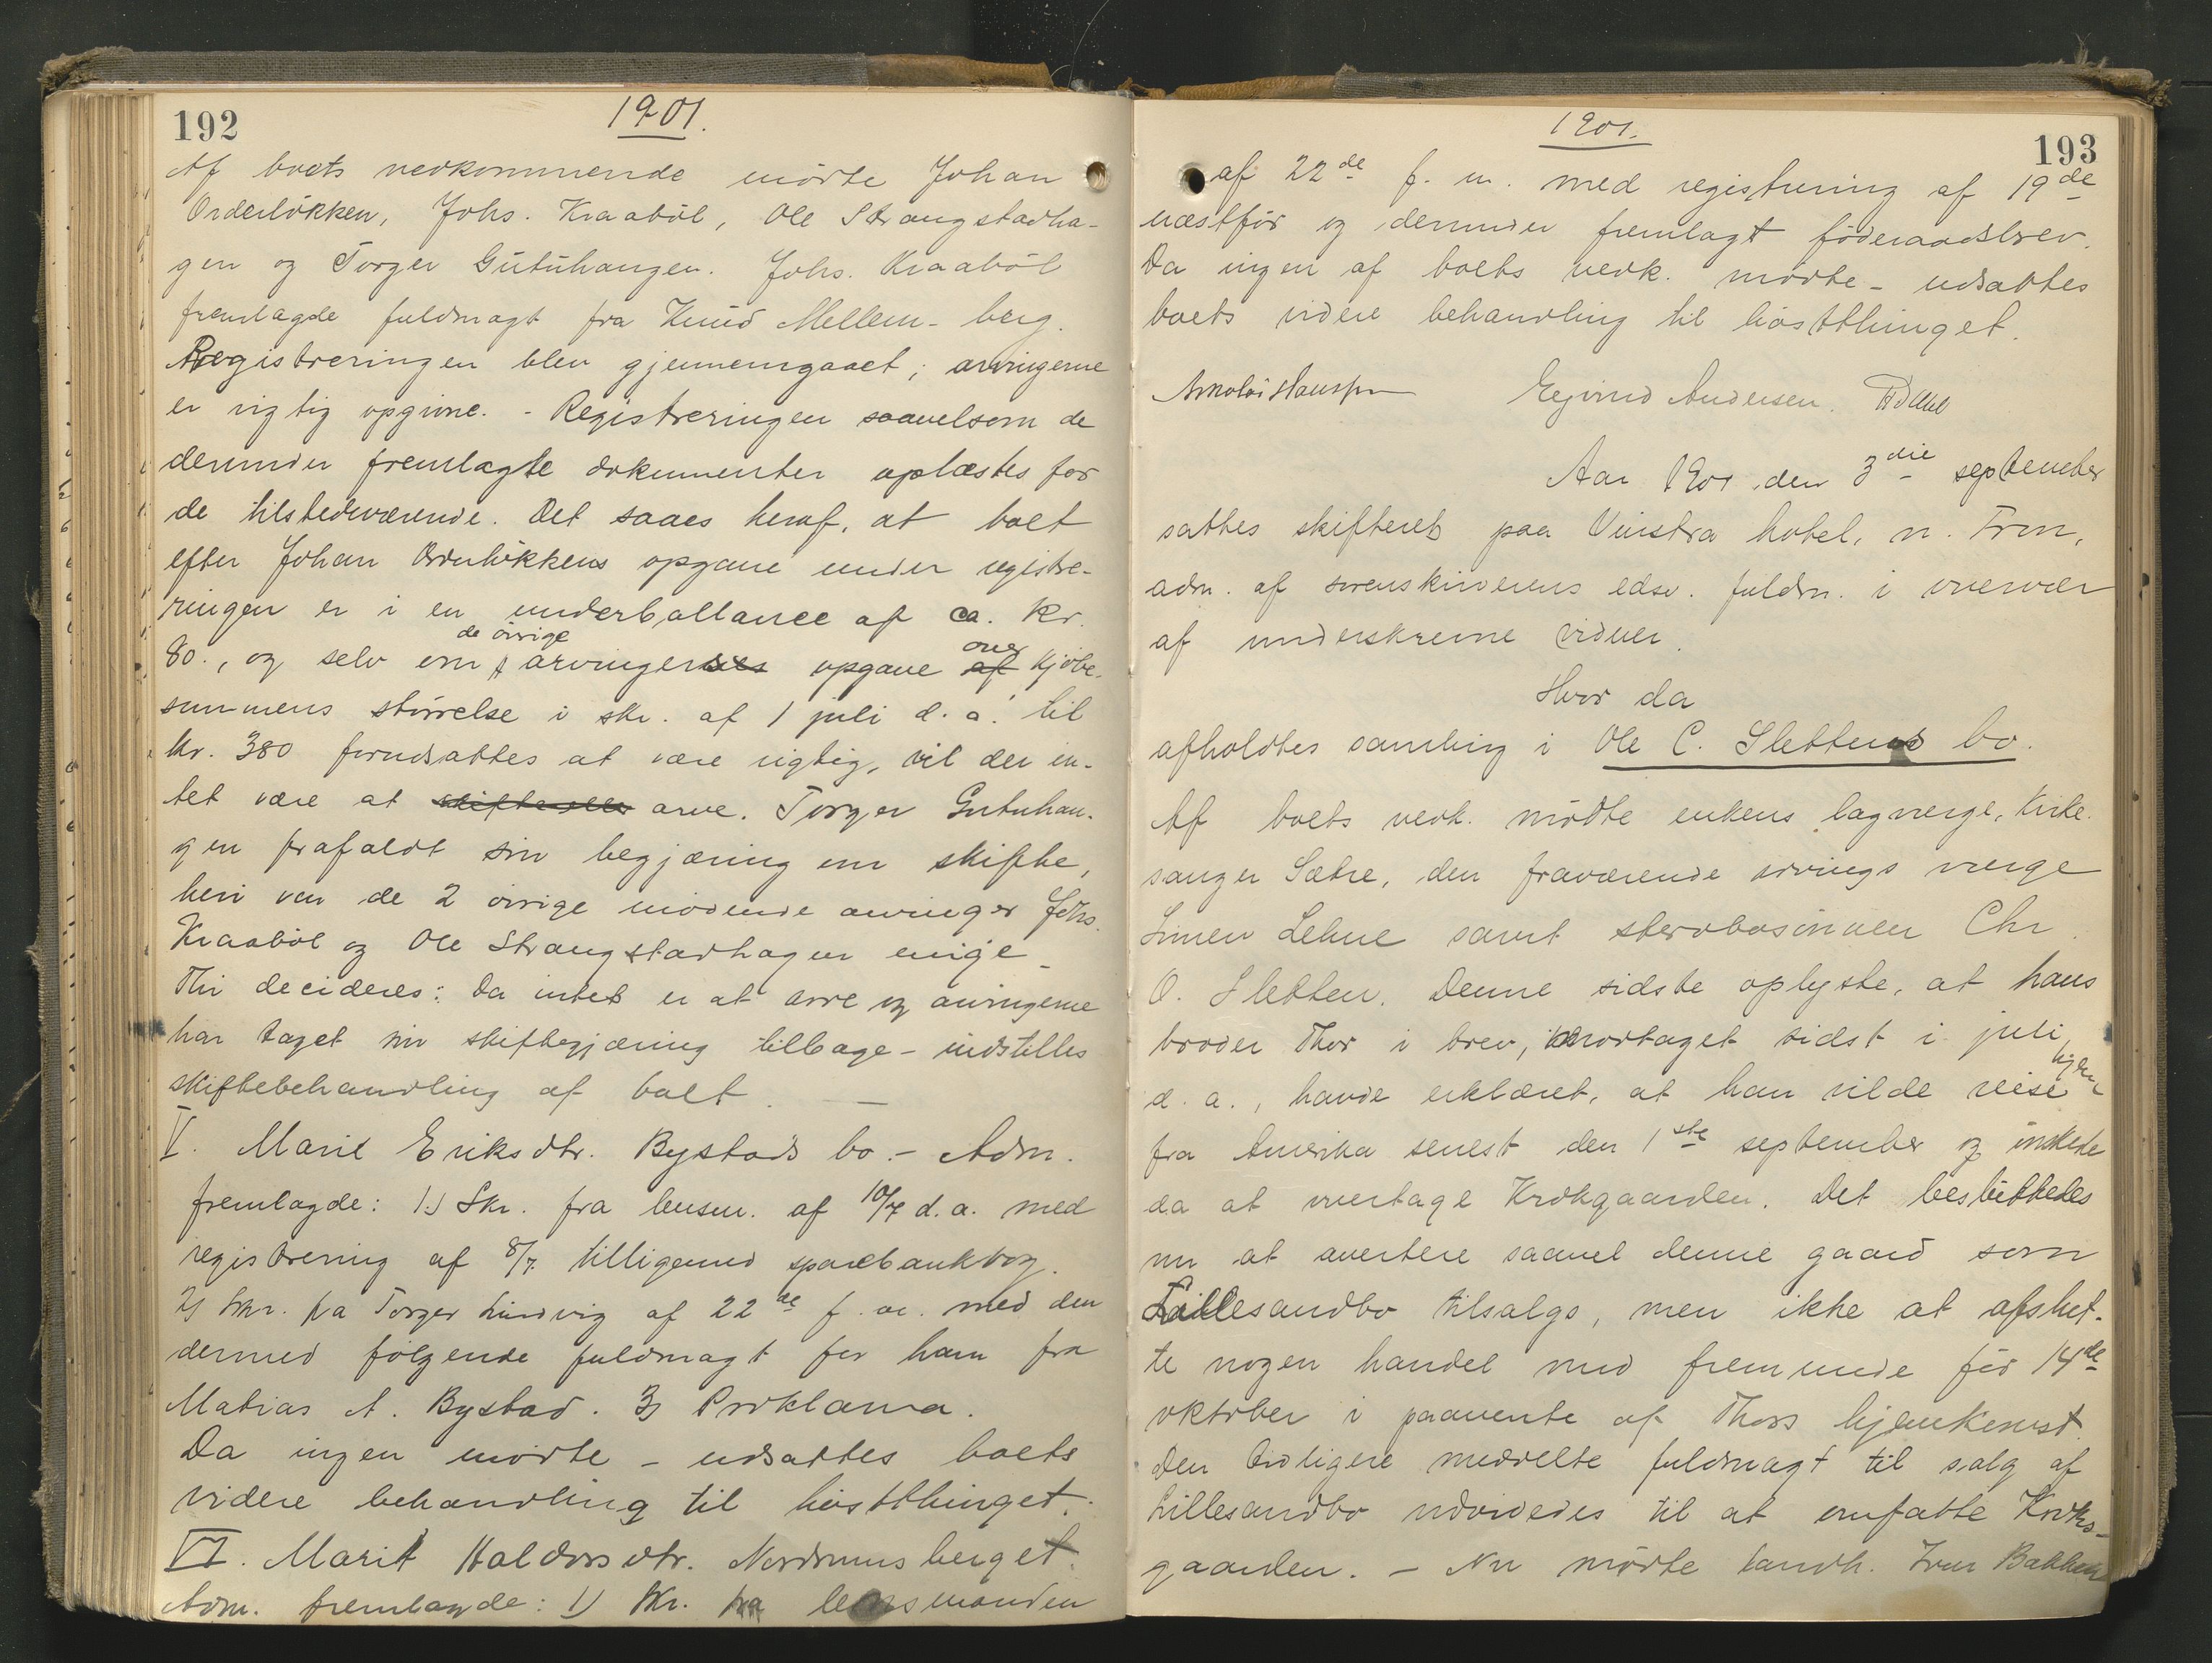 192
1901.
Af boets vedkommende mödte Johan
Orderlökken, Johs. Kraaböl, Ole Strangstadha-
gen og Torger Gutuhaugen. Johs. Kraaböl
fremlagde fuldmagt fra Knud Mellem-berg.
Registreringen blev gjennemgaaet; arvingerne
er rigtig opgivne. - Registreringen saavelsom de
derunder fremlagte dokumenter oplæstes for
de tilstedeværende. Det saaes heraf, at boet
efter Johan Orderlökkens opgave under registre-
ringen er i en underballance af ca. kr.
80., og selv om de övrige arvingers opgave over kjöbe-
summens störrelse i skr. af 1 juli d. a. til
kr. 380 forudsattes at være rigtig, vil der in-
tet være at arve. Torger Gutuhau-
gen frafaldt sin begjæring om skifte,
heri var de 2 övrige mödende arvinger Johs.
Kraaböl og Ole Strangstadhagen enige.
Thi decideres: Da intet er at arve og arvingerne
har taget sin skiftebegjæring tilbage - indstilles
skiftebehandling af boet. —
V. Marit Eriksdtr. Bystads bo. - Adm.
fremlagde: 1.) Skr. fra lensm. af 10/7 d. a. med
registrering af 8/7 tilligemed sparebankbog.
2) Skr. fra Torger Lindvig af 22de f. m. med den
dermed fölgende fuldmagt for ham fra
Matias A. Bystad. 3) Proklama.
Da ingen mödte - udsattes boets
videre behandling til höstthinget.
VI. Marit Haldorsdtr. Nordrumsberget.
Adm. fremlagde: 1) Skr. fra lensmanden
1901.
193
af 22de f. m. med registrering af 19de
næstför og derunder fremlagt föderaadsbrev.
Da ingen af boets vedk. mödte - udsattes
boets videre behandling til höstthinget.
Eyvind Andersen.
Aar 1901 den 3die september
sattes skifteret paa Vinstra hotel, n. Fron,
adm. af sorenskriverens edsv. fuldm. i overvær
af underskrevne vidner.
Hvor da
afholdtes samling i Ole C. Slettens bo.
Af boets vedk. mödte enkens lagverge, Kirke-
sanger Sætre, den fraværende arvings verge
Simen Lehne samt sterbosönnen Chr.
O. Sletten. Denne sidste oplyste, at hans
broder Thor i brev, modtaget sidst i juli
d. a., havde erklæret, at han vilde reise hjem
fra Amerika senest den 1ste september og önskede
da at overtage Krokgaarden. Det besluttedes
nu at avertere saavel denne gaard som
Lillesandbo tilsalgs, men ikke at afslut-
te nogen handel med fremmede för 14de
oktober i paavente af Thors hjemkomst.
Den tidligere meddelte fuldmagt til salg af
Lillesandbo udvidedes til at omfatte Kroks-
gaarden. - Nu mödte landh. Iver Bakken